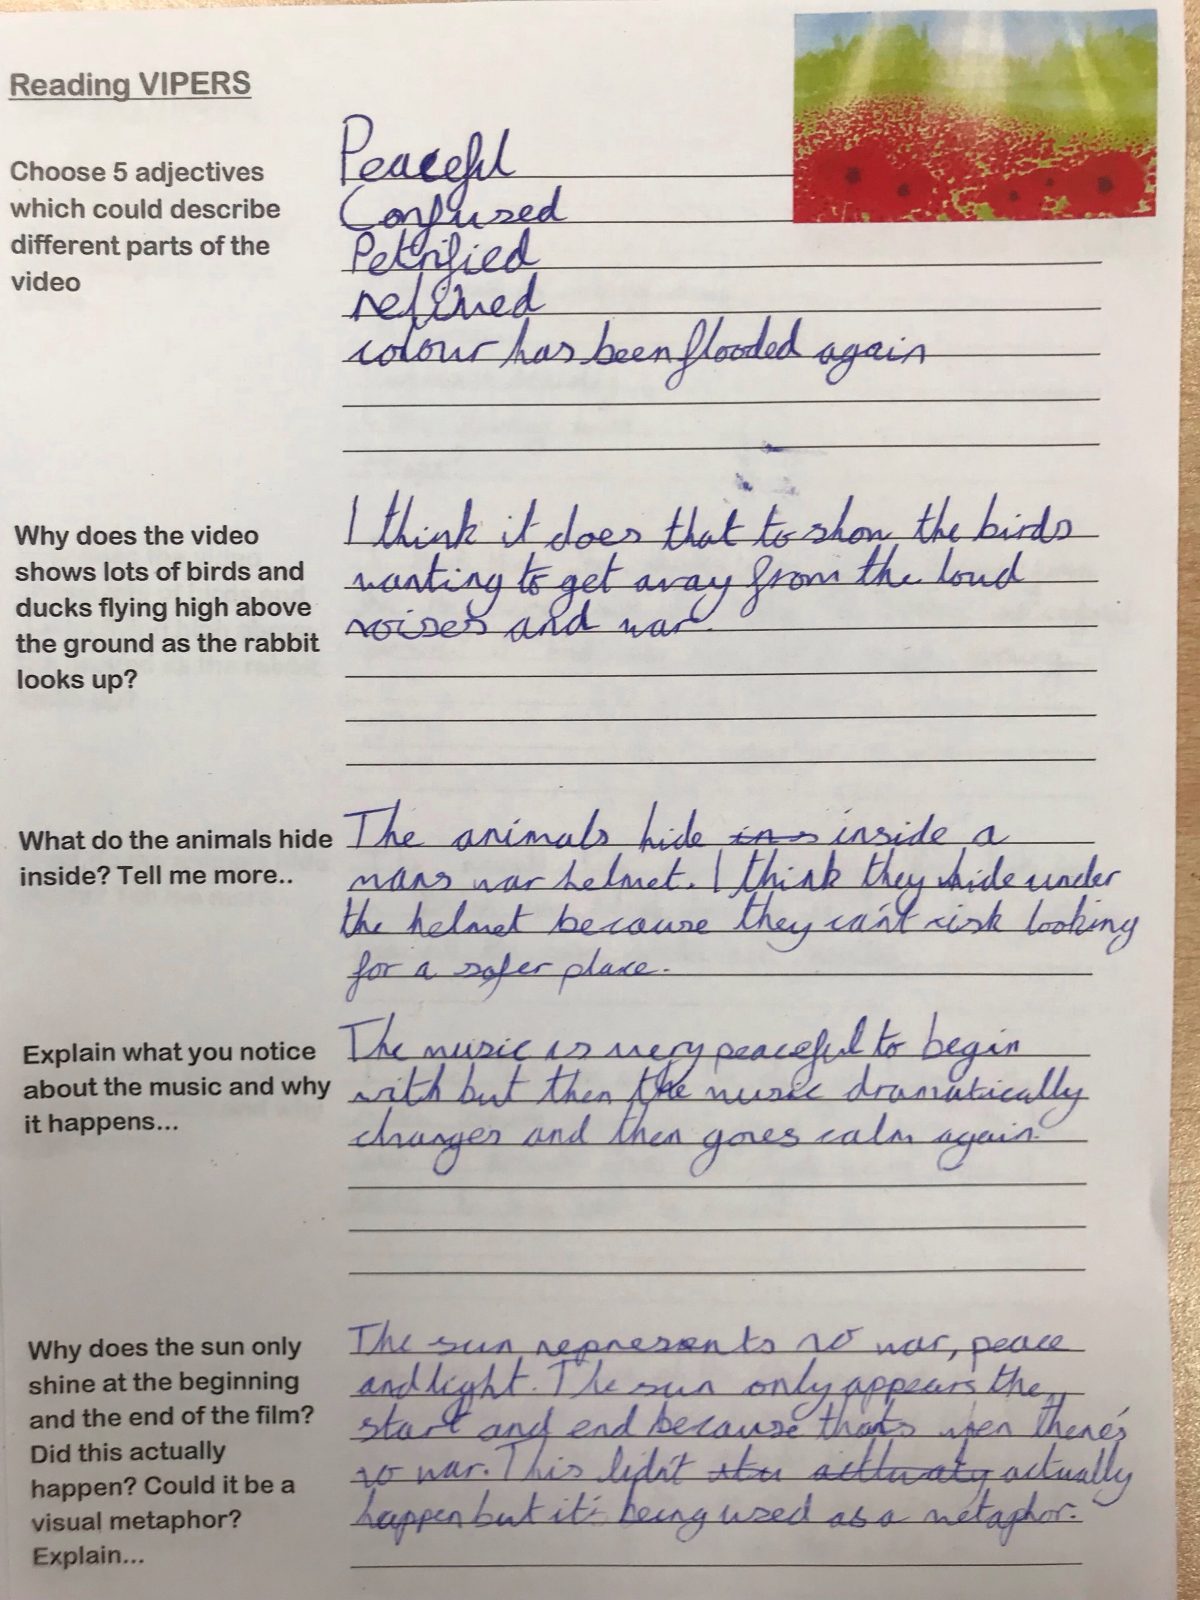 Reading VIPERS
Choose 5 adjectives
which could describe
different parts of the
video
Peaceful
Confused
Petrified
relived
colour has been flooded again
Why does the video
shows lots of birds and
ducks flying high above
the ground as the rabbit
looks up?
I think it does that to show the birds
wanting to get away from the loud
noises and war.
What do the animals hide
inside? Tell me more..
The animals hide inside a
mans war helmet. I think they hide under
the helmet because they can't risk looking
for a safer place.
Explain what you notice
about the music and why
it happens...
The music is very peaceful to begin
with but then the music dramatically
changes and then goes calm again.
Why does the sun only
shine at the beginning
and the end of the film?
Did this actually
happen? Could it be a
visual metaphor?
Explain...
The sun represents no war, peace
and light. The sun only appears the
start and end because thats when there's
no war. This didn't actually
happen but it's being used as a metaphor.